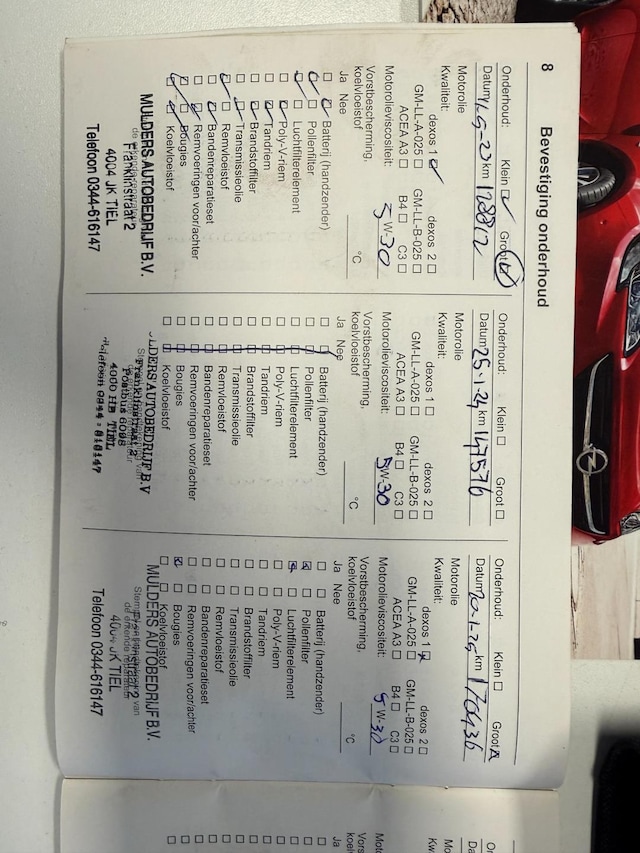 8
Bevestiging onderhoud
Onderhoud: Klein ☑ Groot ☑
Datum 11-9-23 km 128812
Motorolie
Kwaliteit: dexos 1 ☑ dexos 2 ☐
GM-LL-A-025 ☐ GM-LL-B-025 ☐
ACEA A3 ☐ B4 ☐ C3 ☐
Motorolieviscositeit: 5W-30
Vorstbescherming,
koelvloeistof °C
Ja Nee
Batterij (handzender)
Pollenfilter
Luchtfilterelement
Poly-V-riem
Tandriem
Brandstoffilter
Transmissieolie
Remvloeistof
Bandenreparatieset
Remvoeringen voor/achter
Bougies
Koelvloeistof
MULDERS AUTOBEDRIJF B.V.
Franklinstraat 2
4004 JK TIEL
Telefoon 0344-616147
Onderhoud: Klein ☐ Groot ☐
Datum 25-1-24 km 147576
Motorolie
Kwaliteit: dexos 1 ☐ dexos 2 ☐
GM-LL-A-025 ☐ GM-LL-B-025 ☐
ACEA A3 ☐ B4 ☐ C3 ☐
Motorolieviscositeit: 5W-30
Vorstbescherming,
koelvloeistof °C
Ja Nee
Batterij (handzender)
Pollenfilter
Luchtfilterelement
Poly-V-riem
Tandriem
Brandstoffilter
Transmissieolie
Remvloeistof
Bandenreparatieset
Remvoeringen voor/achter
Bougies
Koelvloeistof
MULDERS AUTOBEDRIJF B.V
Franklinstraat 2
Postbus 6098
4000 HB TIEL
Telefoon 0344 - 616147
Onderhoud: Klein ☐ Groot ☒
Datum 20-1-25 km 170436
Motorolie
Kwaliteit: dexos 1 ☒ dexos 2 ☐
GM-LL-A-025 ☐ GM-LL-B-025 ☐
ACEA A3 ☐ B4 ☐ C3 ☐
Motorolieviscositeit: 5W-30
Vorstbescherming,
koelvloeistof °C
Ja Nee
Batterij (handzender)
Pollenfilter
Luchtfilterelement
Poly-V-riem
Tandriem
Brandstoffilter
Transmissieolie
Remvloeistof
Bandenreparatieset
Remvoeringen voor/achter
Bougies
Koelvloeistof
MULDERS AUTOBEDRIJF B.V.
4004 JK TIEL
Telefoon 0344-616147